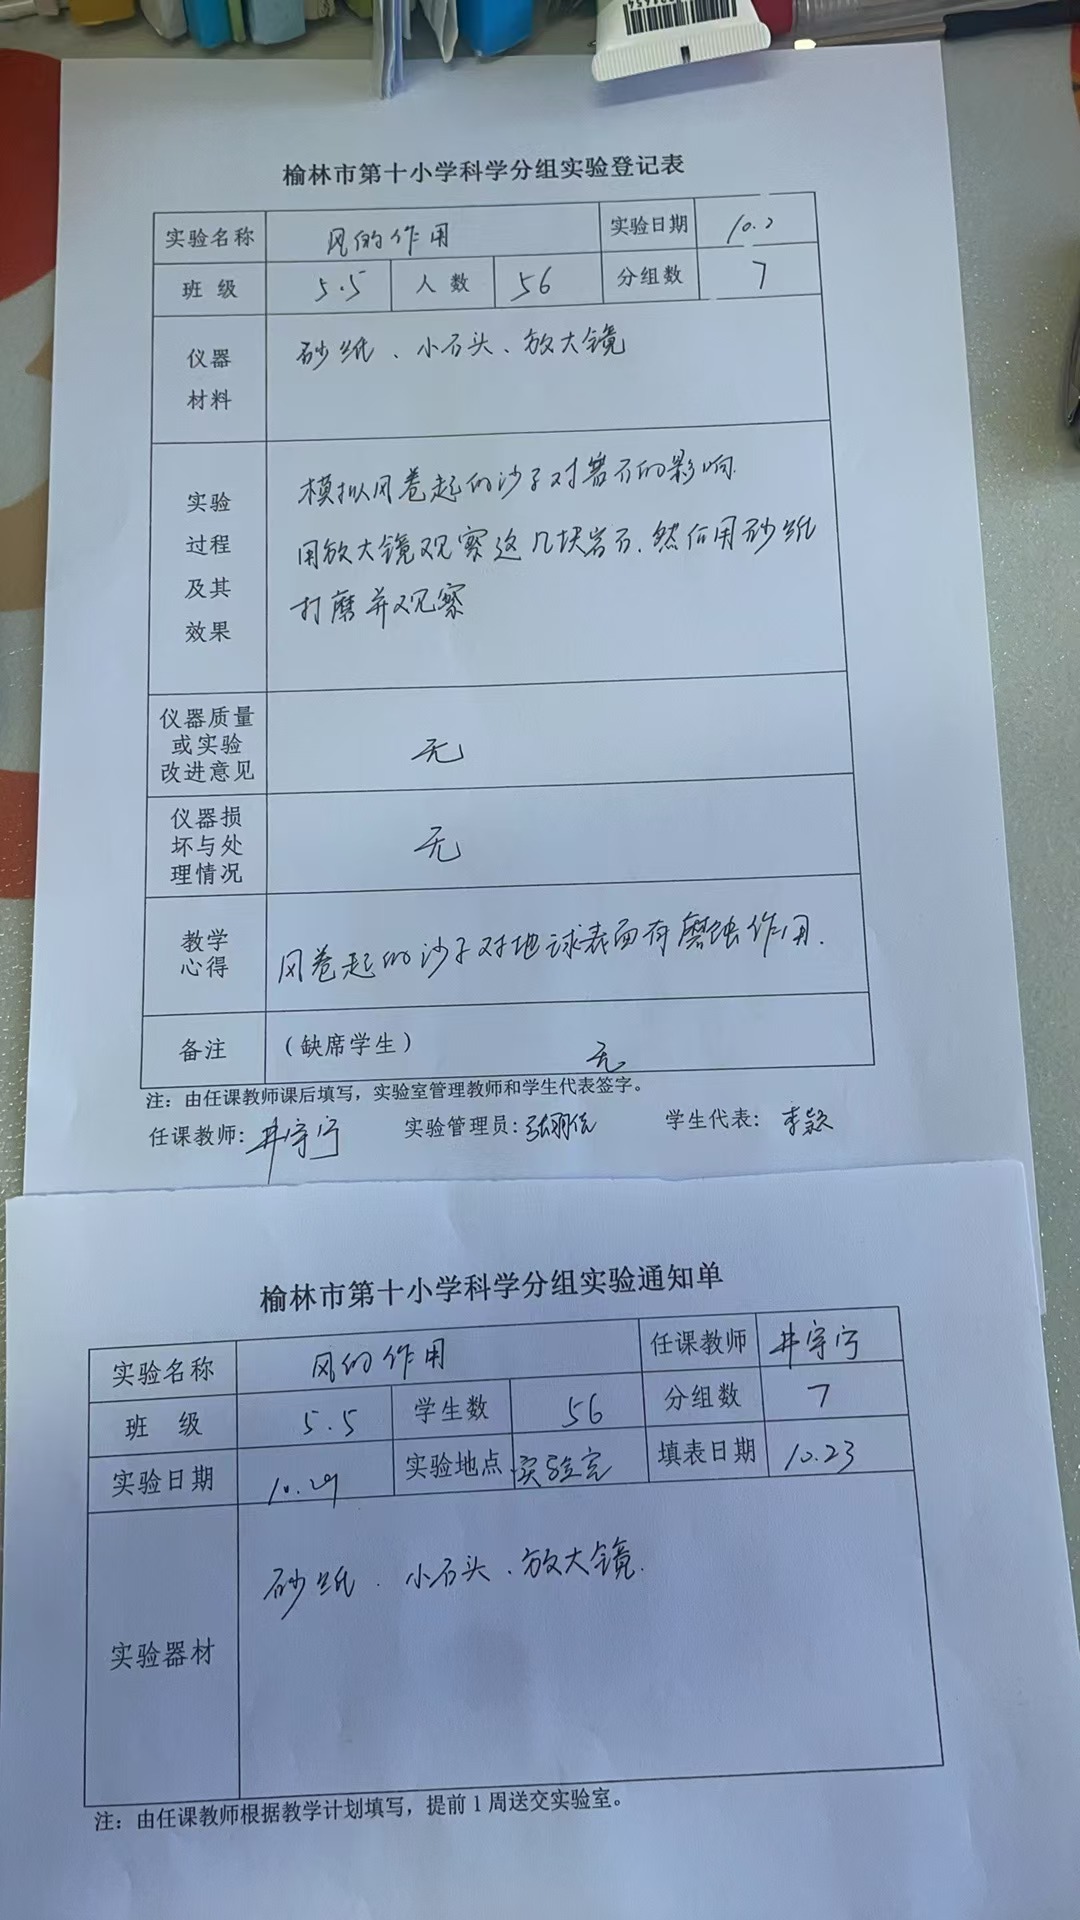 榆林市第十小学科学分组实验登记表
实验名称 风的作用 实验日期 10.2
班级 5.5 人数 56 分组数 7
仪器材料 砂纸、小石头、放大镜
实验过程及其效果
模拟风卷起的沙子对岩石的影响.
用放大镜观察这几块岩石.然后用砂纸
打磨并观察
仪器质量或实验改进意见 无
仪器损坏与处理情况 无
教学心得 风卷起的沙子对地球表面有磨蚀作用.
备注 (缺席学生) 无
注：由任课教师课后填写，实验室管理教师和学生代表签字。
任课教师：井宇宁 实验管理员： 学生代表：李颖
榆林市第十小学科学分组实验通知单
实验名称 风的作用 任课教师 井宇宁
班级 5.5 学生数 56 分组数 7
实验日期 10.29 实验地点 实验室 填表日期 10.23
实验器材 砂纸、小石头、放大镜.
注：由任课教师根据教学计划填写，提前1周送交实验室。